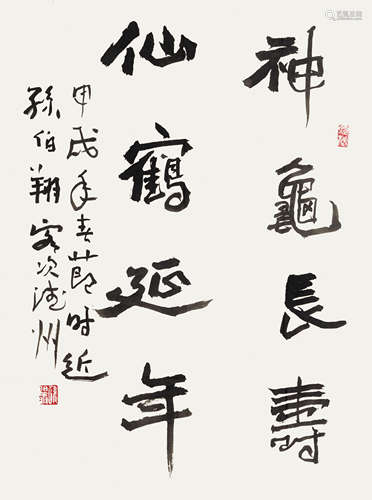 神龜長壽
仙鶴延年
甲戌年春節时近
孫伯翔客次州